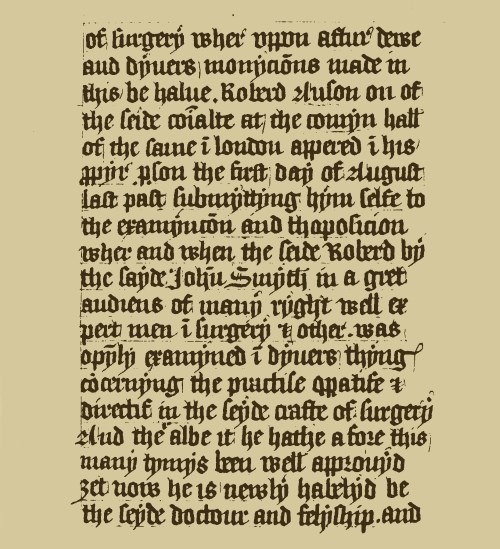 of surgery wher vppon affur dewe
and dyuers monycōns made in
this be halue. Roberd Anson on of
the seide cōīalte at the comyn hall
of the same ī london appered ī his
ppyr pson the first day of August
last past submyttyng hym selfe to
the examyncōn and thapposicion
wher and when the seide Roberd by
the sayde John Smyth in a gret
audiens of many ryght well ex
pert men ī surgery & other. was
opynly examyned ī dyuers thyng
cōcernyng the practise opatife &
directif in the seyde crafte of surgery
And the albe it he hathe a fore this
many tymys been well approuyd
ȝet now he is newly habelyd be
the seyde doctour and felyship. and